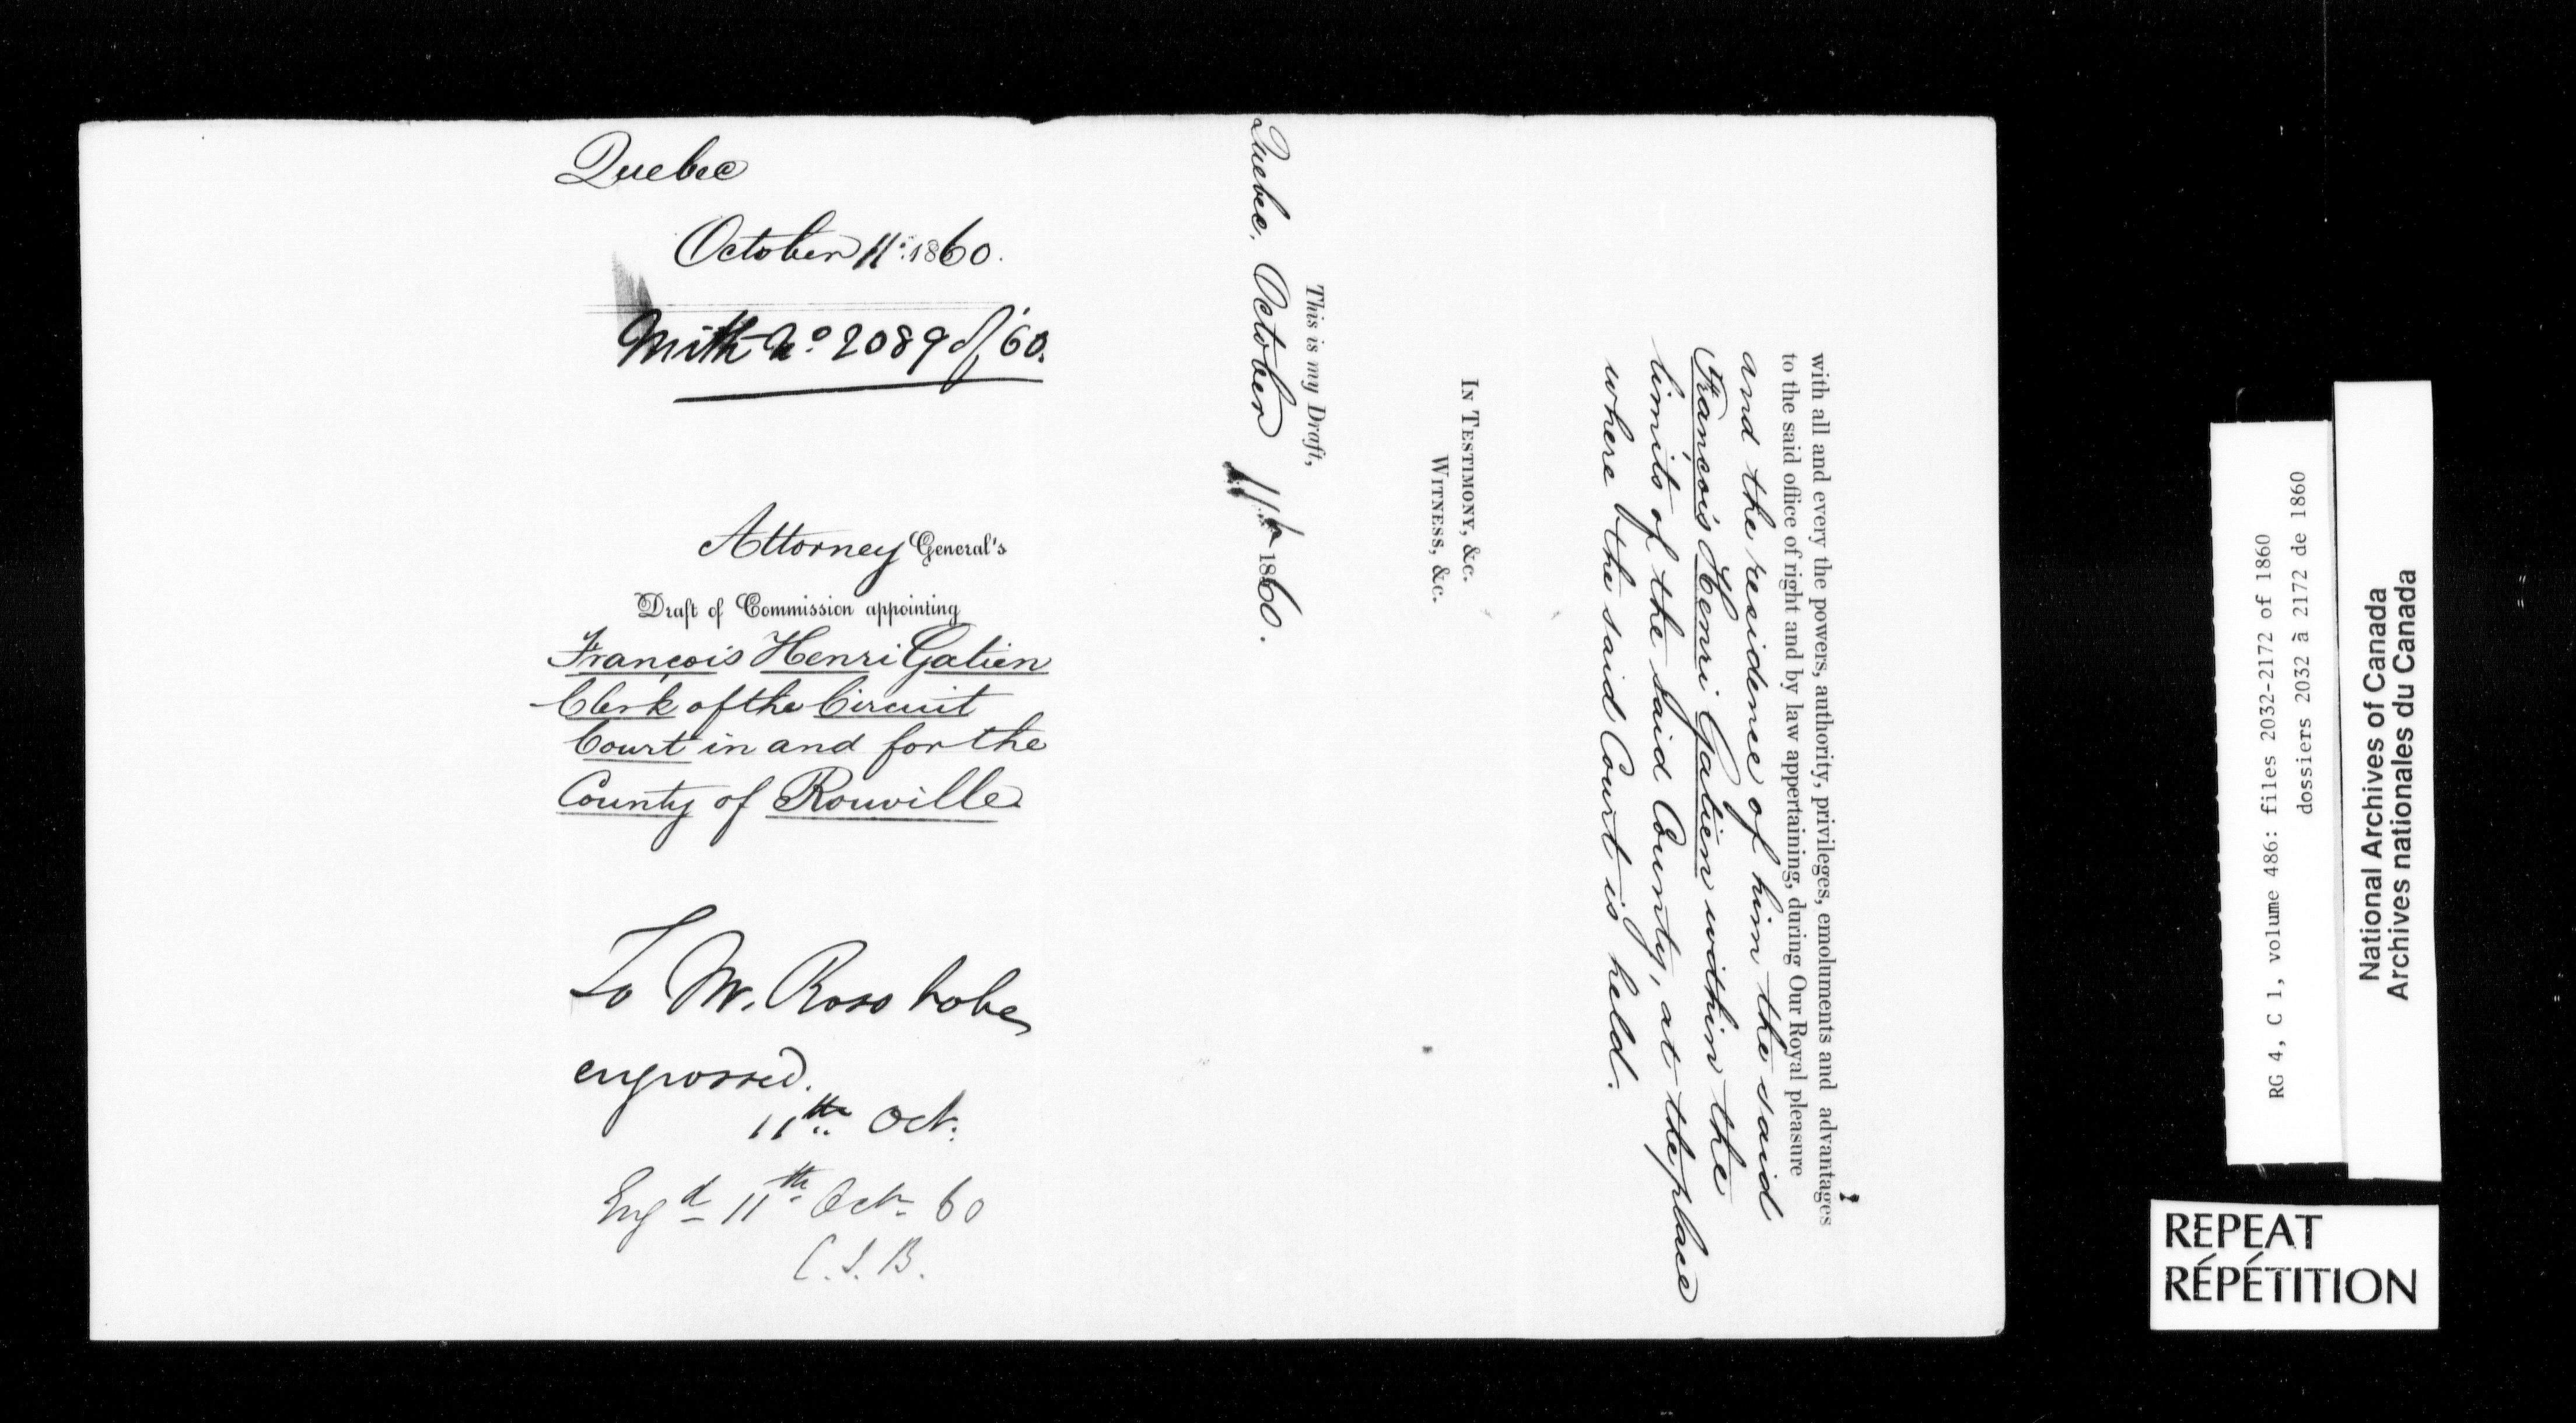 Quebec
October 11th 1860.
With No 2089 of '60.
Attorney General's
Draft of Commission appointing
François Henri Gatien
Clerk of the Circuit
Court in and for the
County of Rouville
To Mr. Ross to be
engrossed.
11th Oct.
Engd 11th Oct. 60
C.J.B.
with all and every the powers, authority, privileges, emoluments and advantages
to the said office of right and by law appertaining, during Our Royal pleasure
and the residence of him the said
François Henri Gatien within the
limits of the said County, at the place
where the said Court is held.
IN TESTIMONY, &c.
WITNESS, &c.
This is my Draft,
Quebec, October 11th 1860.
RG 4, C 1, volume 486: files 2032-2172 of 1860
dossiers 2032 à 2172 de 1860
National Archives of Canada
Archives nationales du Canada
REPEAT
RÉPÉTITION